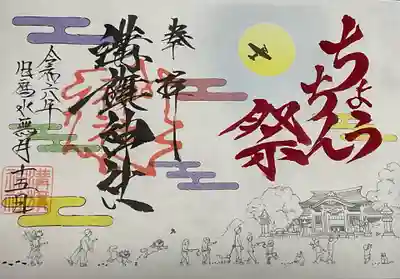 ちょうちん
祭
奉拝
溝旗神社
令和六年
旧暦水無月
十五日